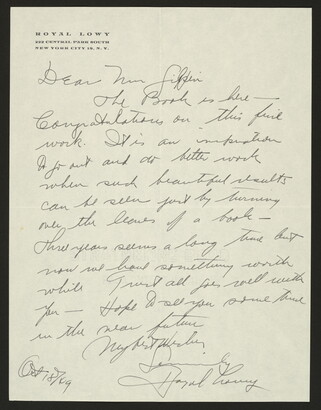 ROYAL LOWY
222 CENTRAL PARK SOUTH
NEW YORK CITY 19, N.Y.
Dear Mr.
The Book is here —
Congratulations on this fine
work. It is an inspiration
to go out and do better work
when such beautiful results
can be seen just by turning
over the leaves of a book —
Three years seems a long time but
now we have something worth
while Trust all goes well with
you — Hope to see you some time
in the near future
My best Wishes
Sincerely
Royal Lowy
Oct 18/49